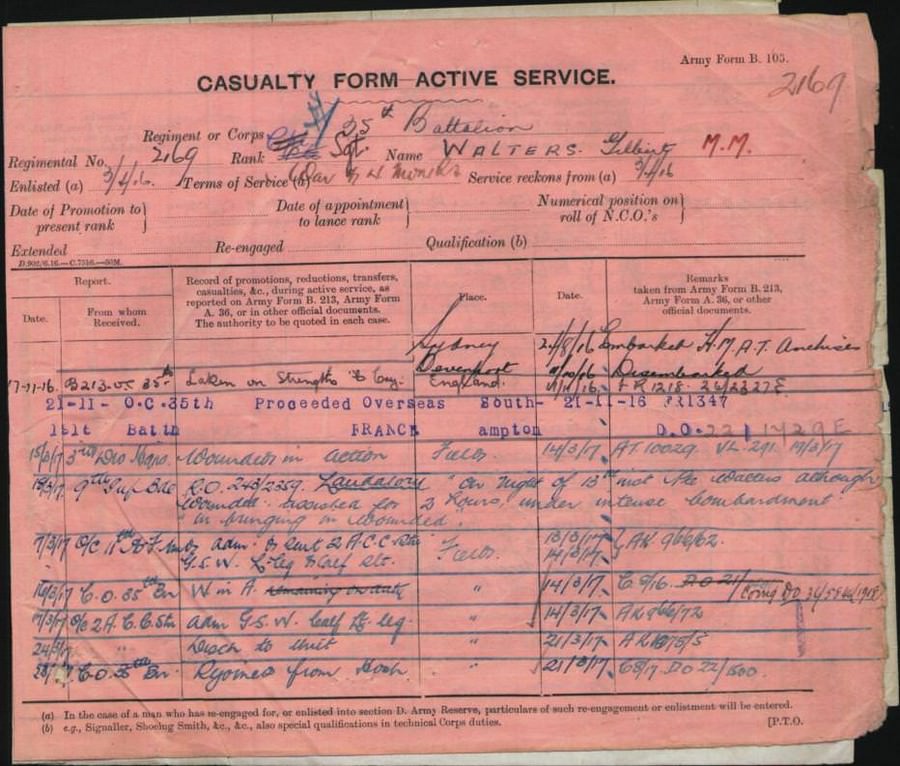 Army Form B. 103.
2169
CASUALTY FORM—ACTIVE SERVICE.
Regiment or Corps 35th Battalion
Regimental No. 2169 Rank Sgt. Name WALTERS. Gilbert M.M.
Enlisted (a) 3/4/16. Terms of Service (a) War & 4 Months Service reckons from (a) 3/4/16
Date of Promotion to present rank } Date of appointment to lance rank } Numerical position on roll of N.C.O.'s }
Extended Re-engaged Qualification (b)
D.902/6.16.—C.7516.—50M.
Report.
Date. From whom Received.
Record of promotions, reductions, transfers, casualties, &c., during active service, as reported on Army Form B. 213, Army Form A. 36, or in other official documents. The authority to be quoted in each case.
Place.
Date.
Remarks taken from Army Form B. 213, Army Form A. 36, or other official documents.
Sydney 24/8/16 Embarked H.M.A.T. Anchises
Devonport Disembarked
17-11-16. B213. OC 35th Taken on Strength England.
21-11- O.C.35th Proceeded Overseas South- 21-11-16 FR1347
Battn FRANCE ampton D.O.
15/3/17 3rd Div Wounded in action Field 14/3/17 19/3/17
9th Inf Bde R.O. On Night of 13th inst. although
wounded assisted for 2 hours, under intense bombardment
in bringing in wounded.
17/3/17 Adm. 2 A.C.C. Stn Field 13/3/17 AK 966/62.
G.S.W. L. leg & calf 14/3/17
C.O. 35th Bn W in A. remaining on duty " 14/3/17
17/3/17 O/C 2 A.C.C. Stn adm G.S.W. Calf Lt leg. " 14/3/17 AK966/72
" Disch to Unit " 21/3/17
C.O. 35th Bn. Rejoined from Hosp. " 21/3/17
(a) In the case of a man who has re-engaged for, or enlisted into section D. Army Reserve, particulars of such re-engagement or enlistment will be entered.
(b) e.g., Signaller, Shoeing Smith, &c., &c., also special qualifications in technical Corps duties. [P.T.O.